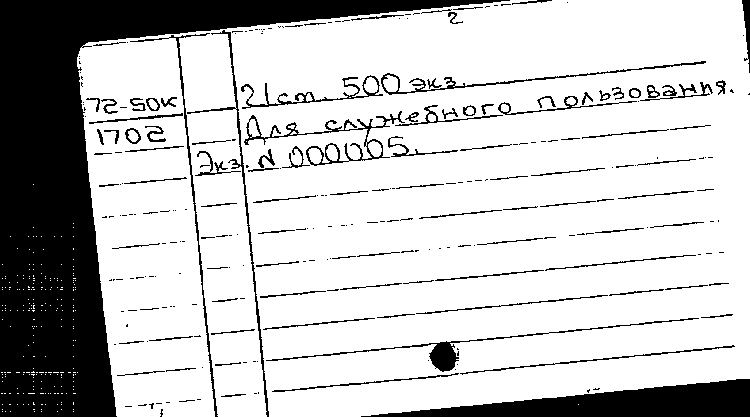 2
72-50к 21 ст. 500 экз.
1702 Для служебного пользования.
Экз. N 000005.